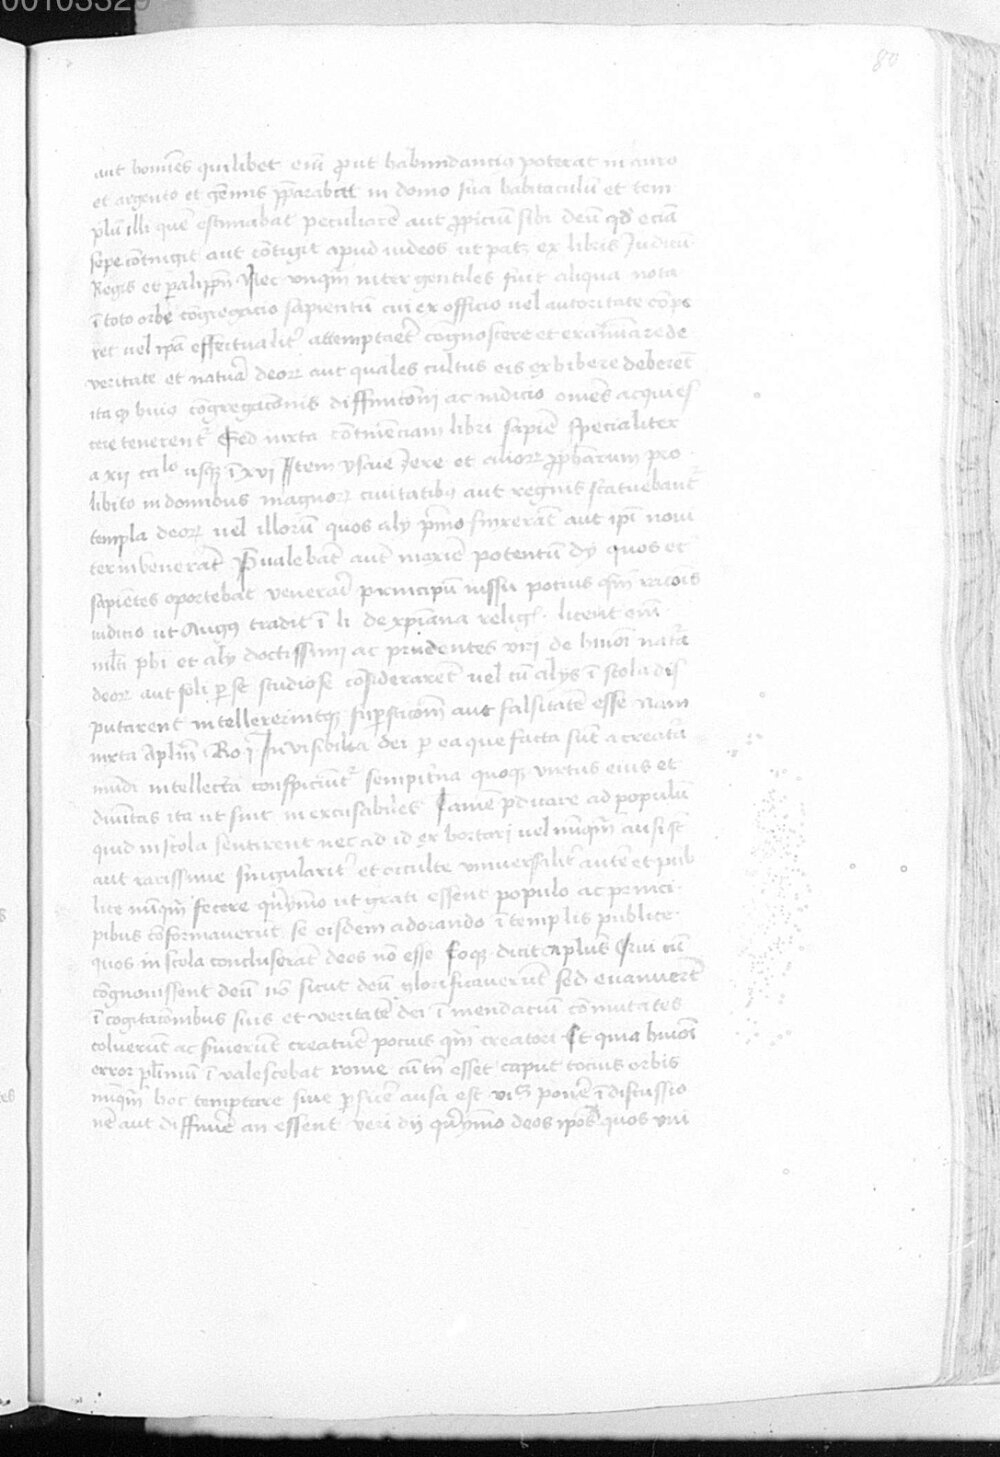 00103329
80
aut homīes quilibet eni͞ prout habundanciꝰ poterat in auro
et argento et gēmis ꝓparabat in domo sua habitaculū et tem
plū illi quē estimabat peculiarē aut ꝓpiciū sibi deū qđ eciā
sepe cōtingit aut cōtigit apud iudeos ut patꝫ ex libris Judicū
Regū et ꝑalippō͞ Nec vnqm̄ inter gentiles fuit aliqua nota
ī toto orbe cōgregacio sapientū cui ex officio uel autoritate cōpe
ret uel ipā effectualitʼ attemptaret cōgnoscere et examinare de
veritate et natura deoꝝ aut quales cultus eis exhibere deberēt
ita ꝙ huiꝰ cōgregacōnis diffinicōni ac iudicio omēs acquies
cere tenerentʳ Sed iuxta cōtinēciam libri sapiē specialiter
a xii caͦlo usqꝫ ī xvi Item et alioꝝ ꝓphetarum pro
libito in domibus magnoꝝ ciuitatibꝰ aut regnis statuebantʳ
templa deoꝝ uel illorū quos alij pͥmo finxerāt aut ipī noui
ter inuenerāt Preualebāt aut maxīe potentū dij quos et
sapiētes oportebat venerari principū iussu pociusqm̄ racōis
iudicio ut Augꝰ tradit ī li de xpiana religē licent eni͞
mlt̄i phi et alij doctissimi ac prudentes viri de huiōi natᵃ
deoꝝ aut soli ꝑ se studiose cōsiderarēt uel cū alijs ī scola dis
putarent intellexerintqꝫ suꝑsticōnē aut falsitatē esse Nam
iuxta Aplm̄ Ro i Inuisibilia dei ꝑ ea que facta sūt a creatᵃ
mūdi intellecta conspiciūtʳ sempitʼna quoqꝫ virtus eius et
diuītas ita ut sint inexcusabiles Tamē ꝓdicare ad populū
quid in scola sentirent nec ad id exhortari uel nūqm̄ ausi sūt
aut rarissime singularitʼ et occulte vniuersalitʼ autē et pub
lice nūqm̄ fecere qͥnymo ut grati essent populo ac princi
pibus cōformauerūt se eisdem adorando ī templis publice
quos in scola concluserāt deos nō esse Eoqꝫ dicit aplus Qui cū
cōgnouissent deū nō sicut deū glorificauerūt sed euanuerūt
ī cogitacōnibus suis et veritatē dei ī mendaciū cōmutātes
coluerūt ac seruierūt creaturē pocius qm̄ creatori Et quia huiōi
error plimū ī valescebat rome cū tn̄ esset caput tocius orbis
nūqm̄ hoc temptare siue ꝑficere ausa est ponē ī discussio
nē aut diffinicē an essent veri dij qͥnymo deos ipōs quos vni